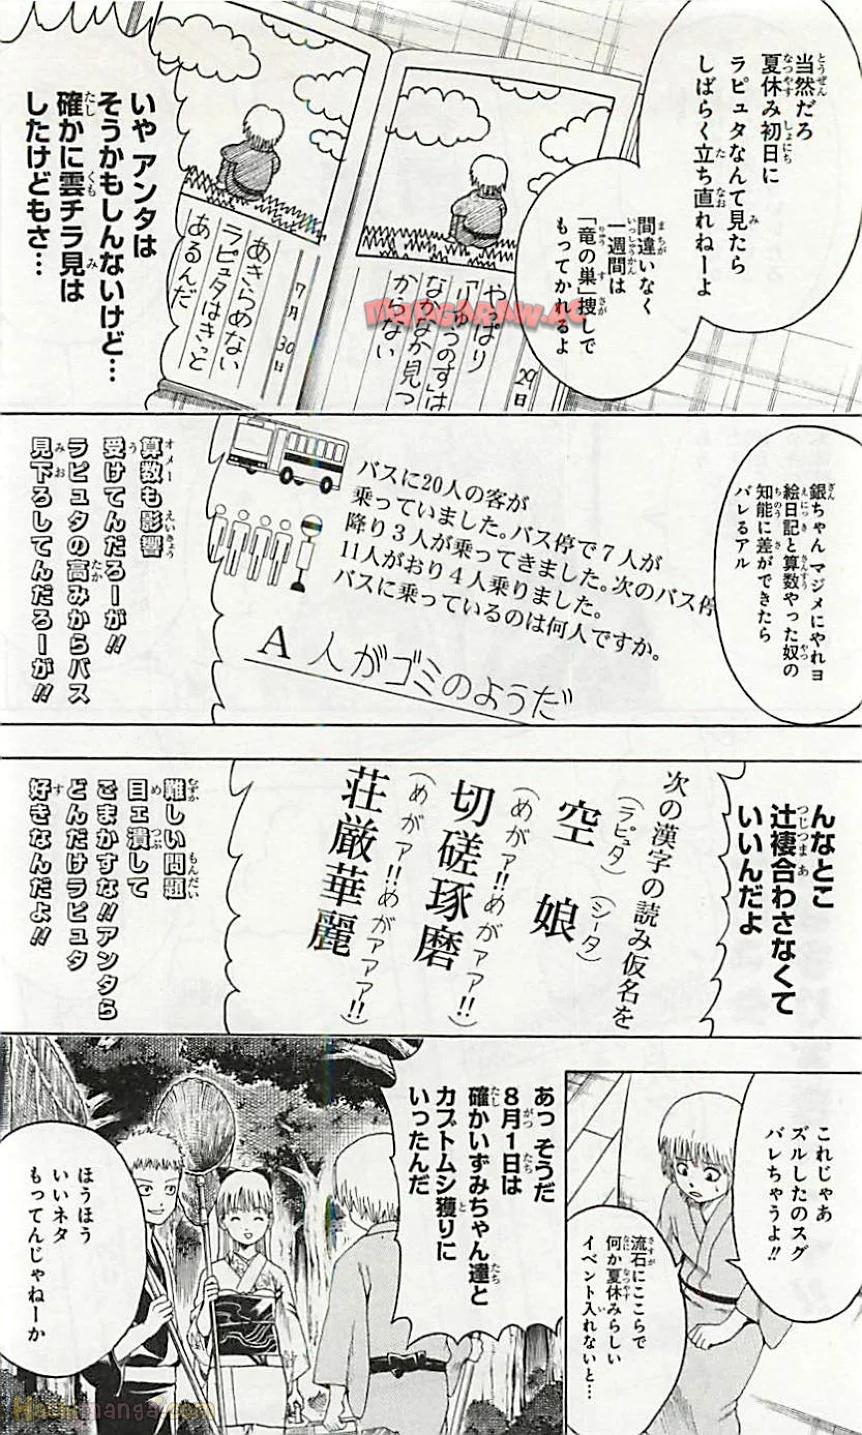 当然だろ
夏休み初日に
ラピュタなんて見たら
しばらく立ち直れねーよ
間違いなく
一週間は
「竜の巣」捜しで
もってかれるよ
29日
やっぱり
「りゅうのす」は
なかなか見つ
からない
7月30日
あきらめない
ラピュタはきっと
あるんだ
いや アンタは
そうかもしんないけど…
確かに雲チラ見は
したけどもさ…
銀ちゃん マジメにやれヨ
絵日記と算数やった奴の
知能に差ができたら
バレるアル
バスに20人の客が
乗っていました。バス停で7人が
降り3人が乗ってきました。次のバス停
11人がおり4人乗りました。
バスに乗っているのは何人ですか。
A 人がゴミのようだ
算数も影響
受けてんだろーが!!
ラピュタの高みからバス
見下ろしてんだろーが!!
んなとこ
辻褄合わさなくて
いいんだよ
次の漢字の読み仮名を
(ラピュタ) (シータ)
空 娘
(めがァ!!めがァァ!!)
切磋琢磨
(めがァ!!めがァァァ!!)
荘厳華麗
難しい問題
目ェ潰して
ごまかすな!!アンタら
どんだけラピュタ
好きなんだよ!!
これじゃあ
ズルしたのスグ
バレちゃうよ!!
流石にここらで
何か夏休みらしい
イベント入れないと…
あっ そうだ
8月1日は
確かいずみちゃん達と
カブトムシ獲りに
いったんだ
ほうほう
いいネタ
もってんじゃねーか
MANGARAW.AC
Hachimanga.com